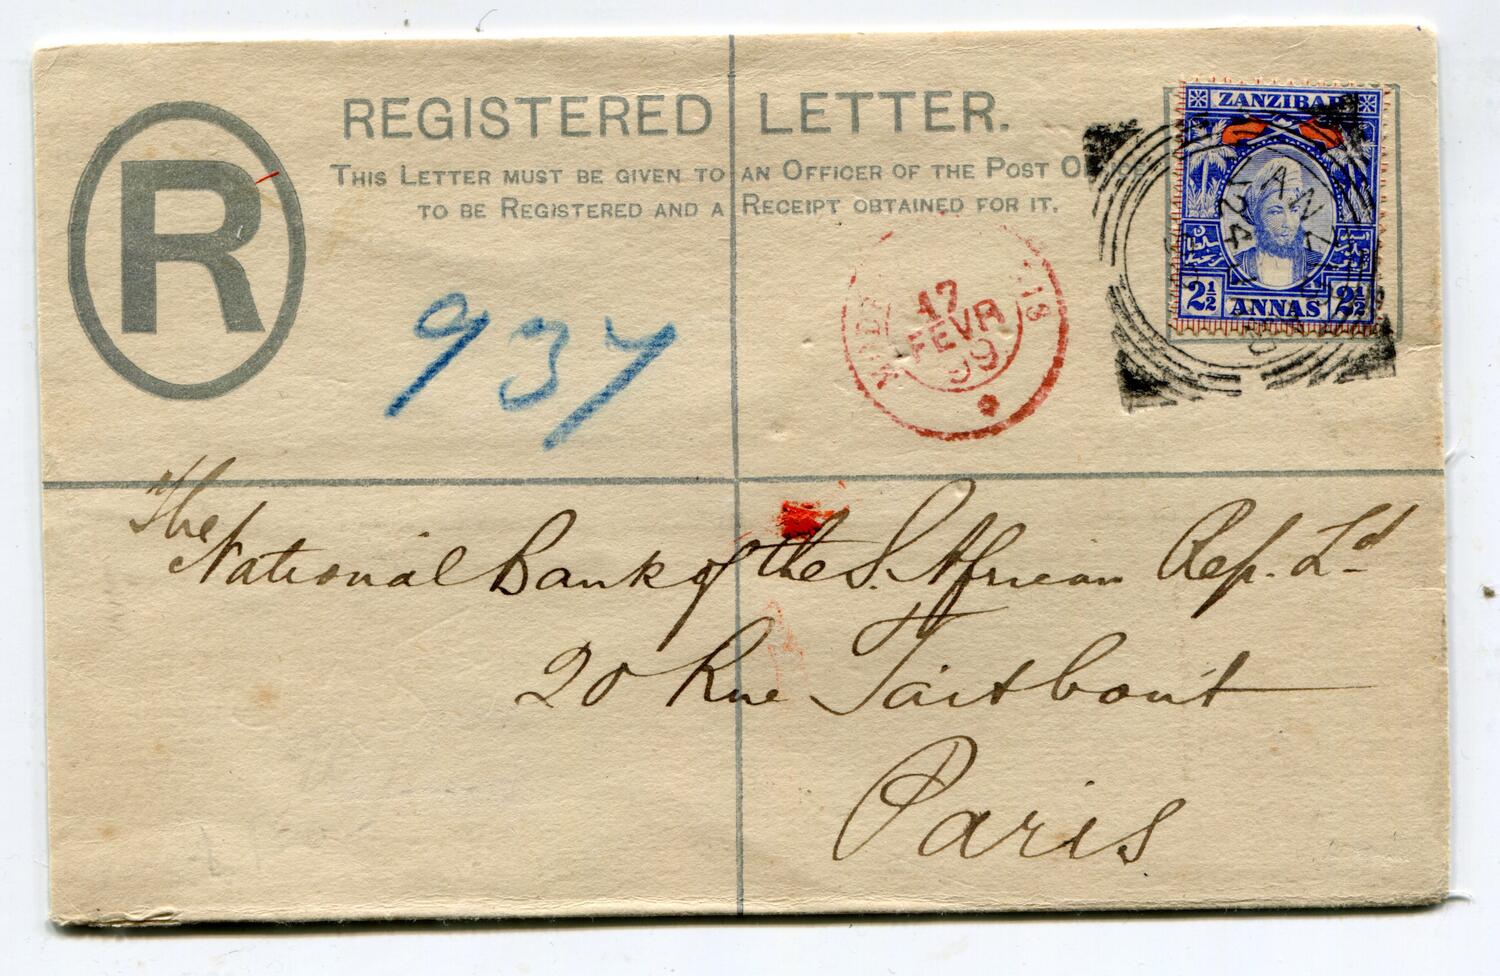 R
REGISTERED LETTER.
THIS LETTER MUST BE GIVEN TO AN OFFICER OF THE POST OFFICE
TO BE REGISTERED AND A RECEIPT OBTAINED FOR IT.
ZANZIBAR
2½ ANNAS 2½
937
17
FEVR
99
The
National Bank of the S. African Rep. Ld
20 Rue Taitbout
Paris